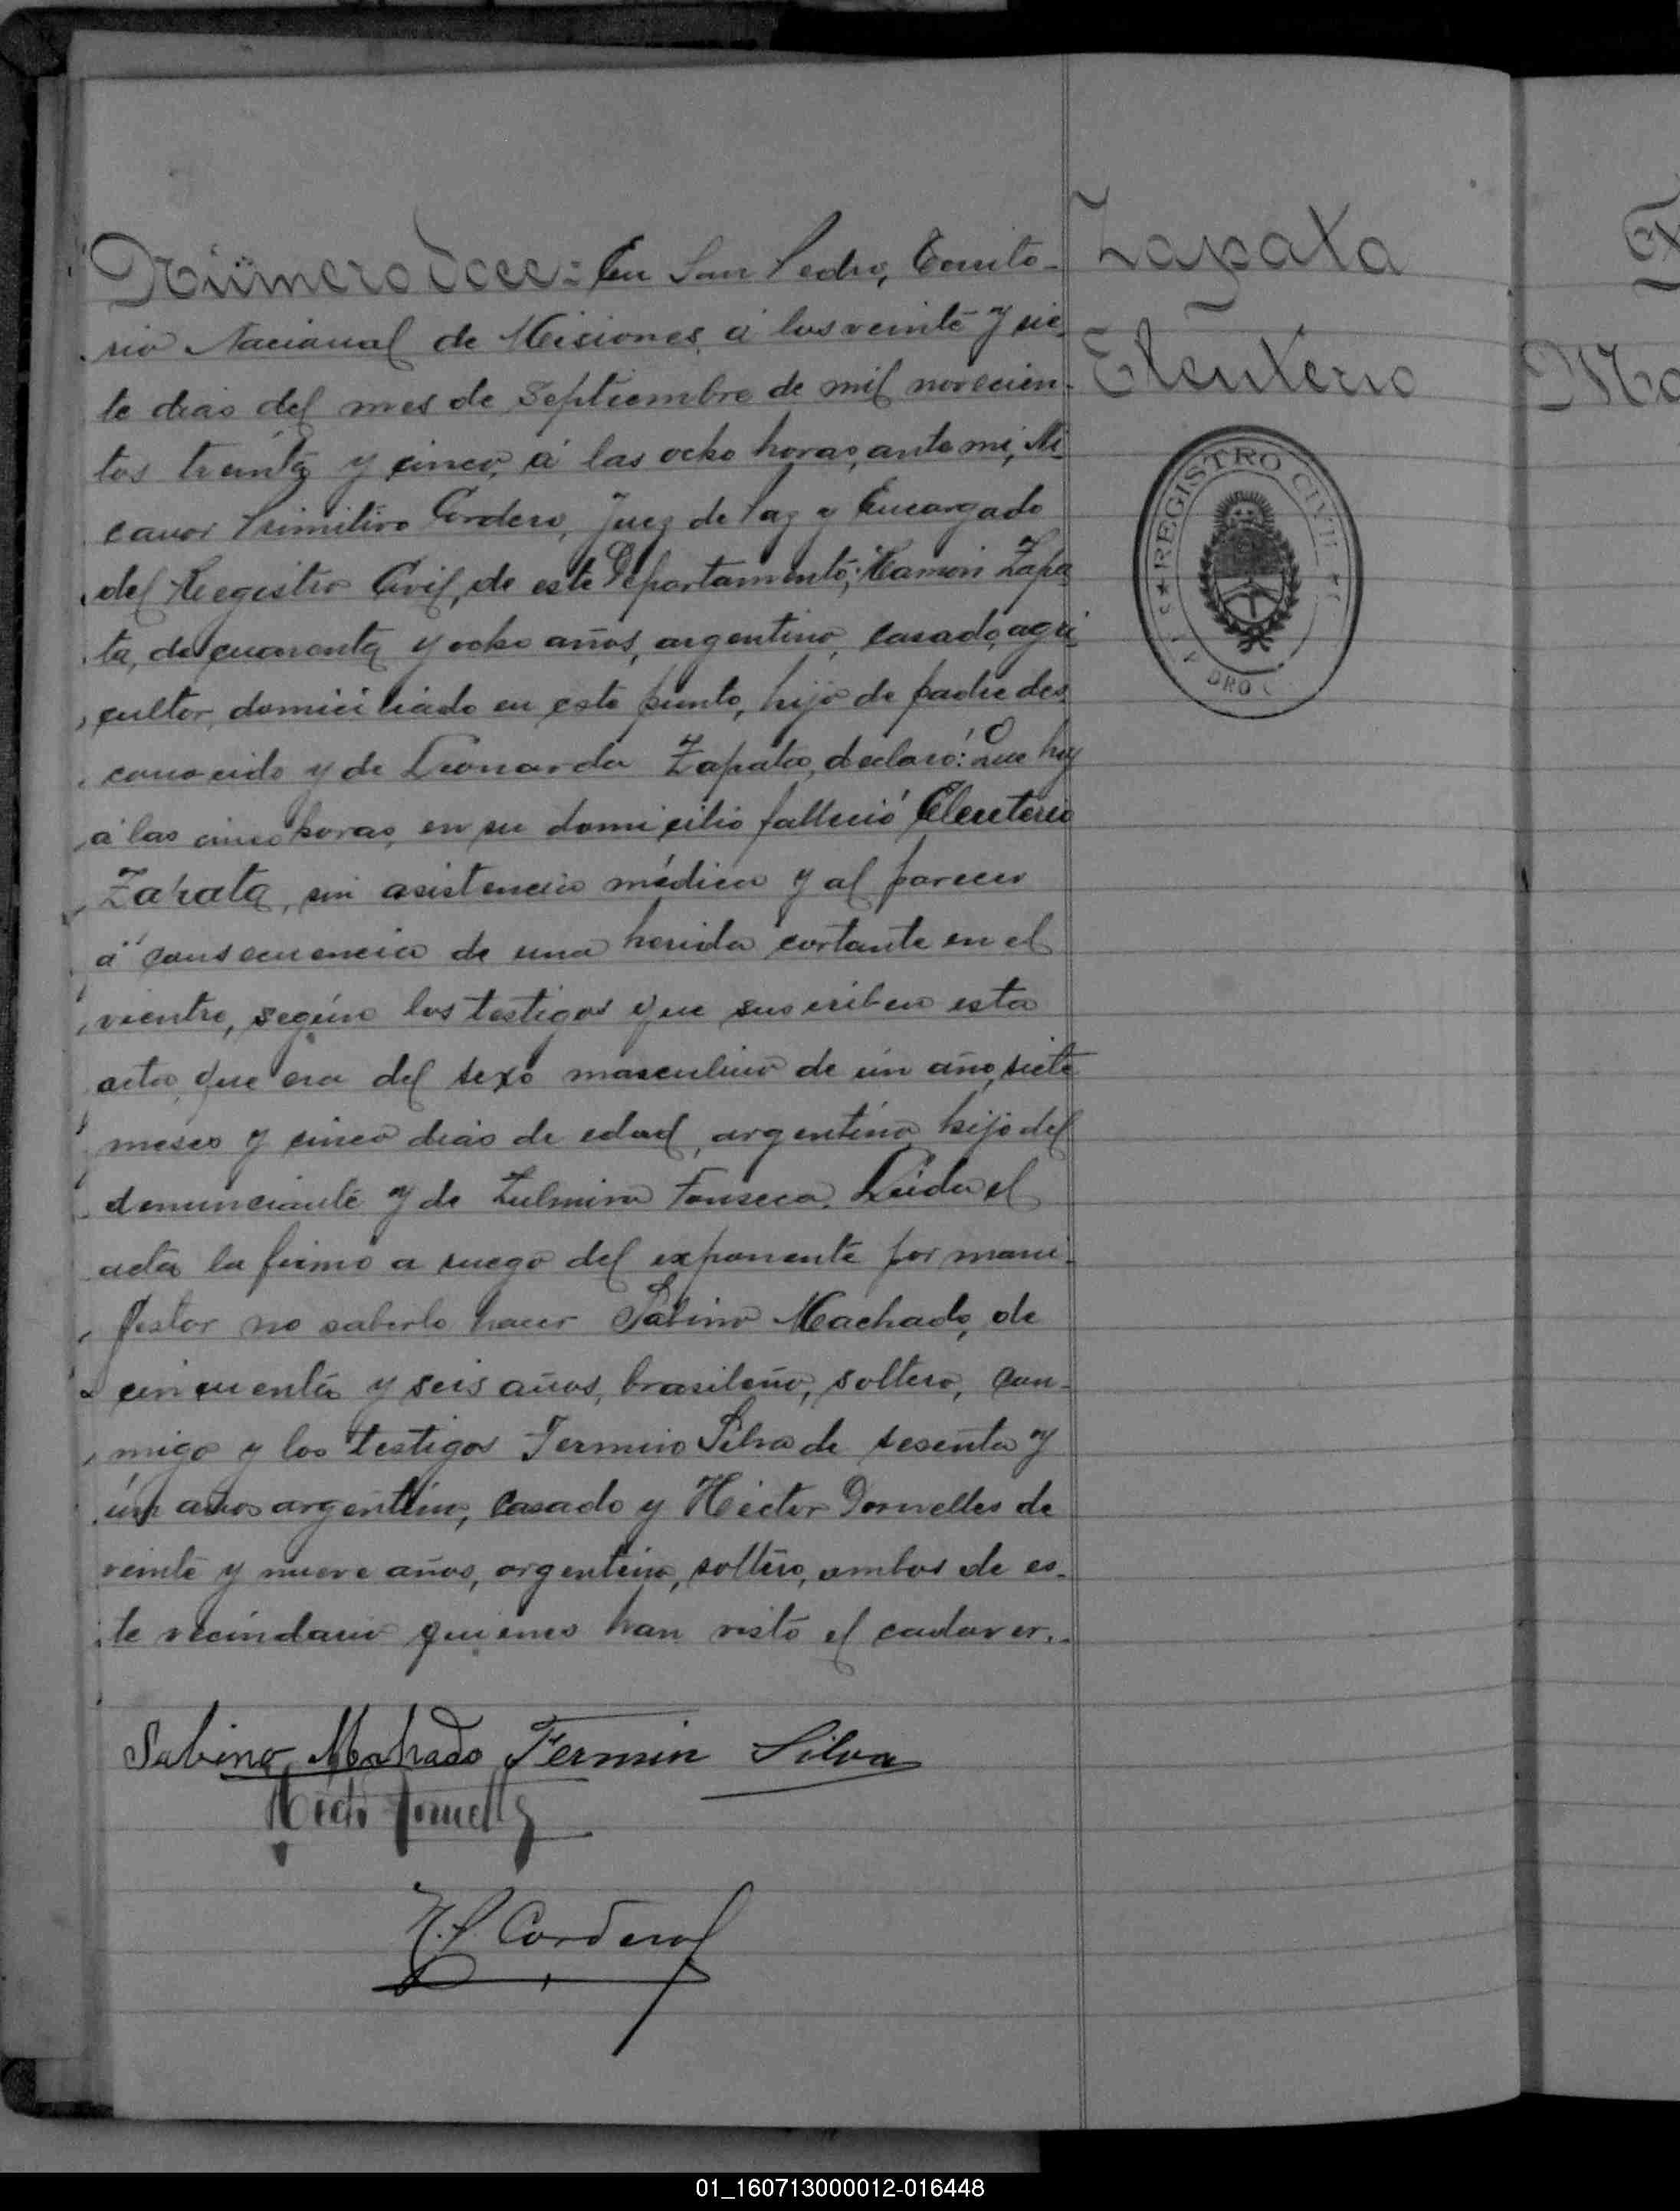 Número doce: En San Pedro, Territo-
rio Nacional de Misiones, á los veinte y sie-
te dias del mes de Septiembre de mil novecien-
tos treinta y cinco, á las ocho horas, ante mi, Ni-
canor Primitivo Cordero, Juez de Paz y Encargado
del Registro Civil, de este Departamento; Ramón Zapa
ta, de cuarenta y ocho años, argentino, casado, agri-
cultor, domiciliado en este punto, hijo de padre des-
conocido y de Leonarda Zapata, declaró: Que hoy
á las cinco horas, en su domicilio falleció Eleuterio
Zapata, sin asistencia médica y al parecer
á consecuencia de una herida cortante en el
vientre, según los testigos que suscriben esta
acta, que era del sexo masculino de un año, siete
meses y cinco dias de edad, argentino, hijo del
denunciante y de Zulmira Fonseca. Leida el
acta la firmó a ruego del exponente por mani-
festar no saberlo hacer Sabino Machado, de
cincuenta y seis años, brasileño, soltero, con-
migo y los testigos Fermin Silva de sesenta y
un años argentino, casado y Héctor Dornelles de
veinte y nueve años, argentino, soltero, ambos de es-
te vecindario quienes han visto el cadaver.-
Sabino Mahado Fermin Silva
N. P. Cordero
Zapata
Eleuterio
REGISTRO CIVIL
01_160713000012-016448